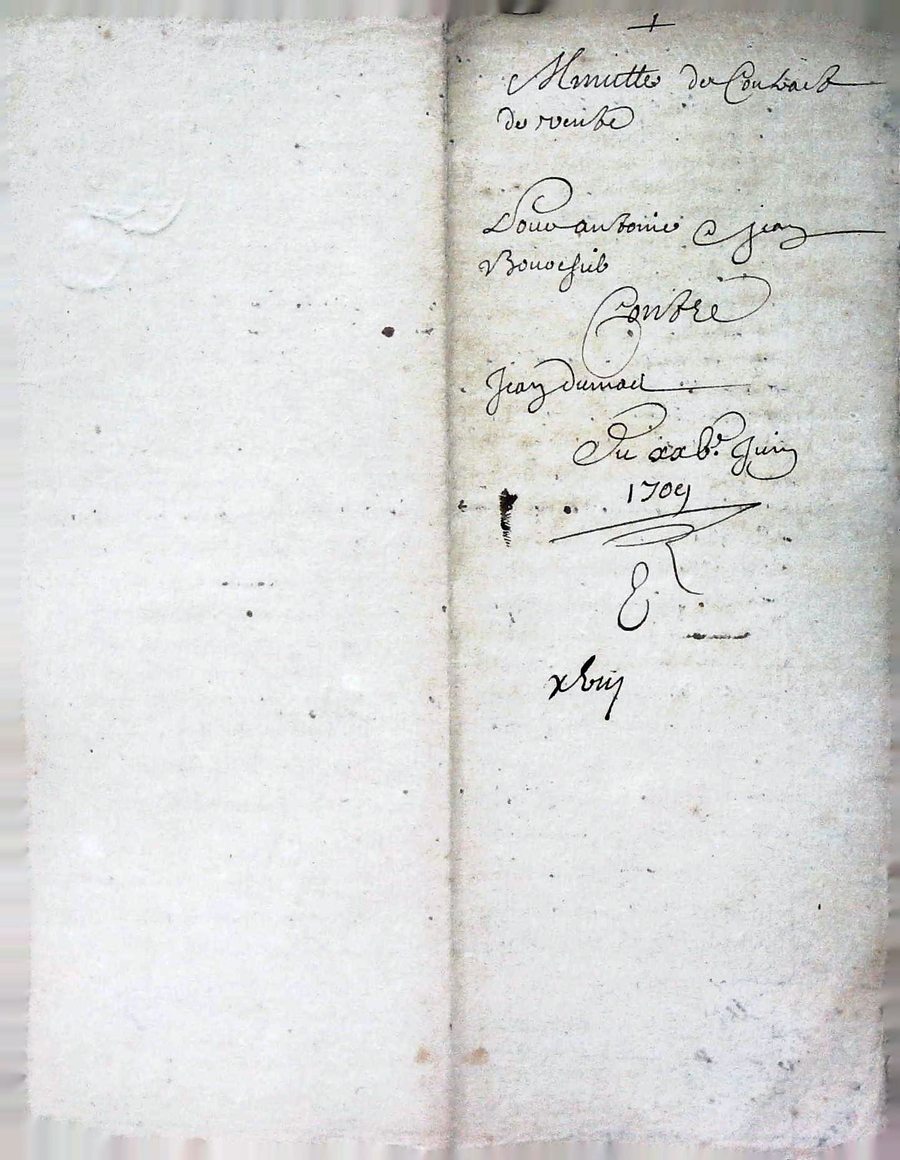 +
Minutte de Contract
de vente
Pour antoine & jean
Bouvehil
Contre
Jean dumad
Du xxve. Juin
1709
xviij